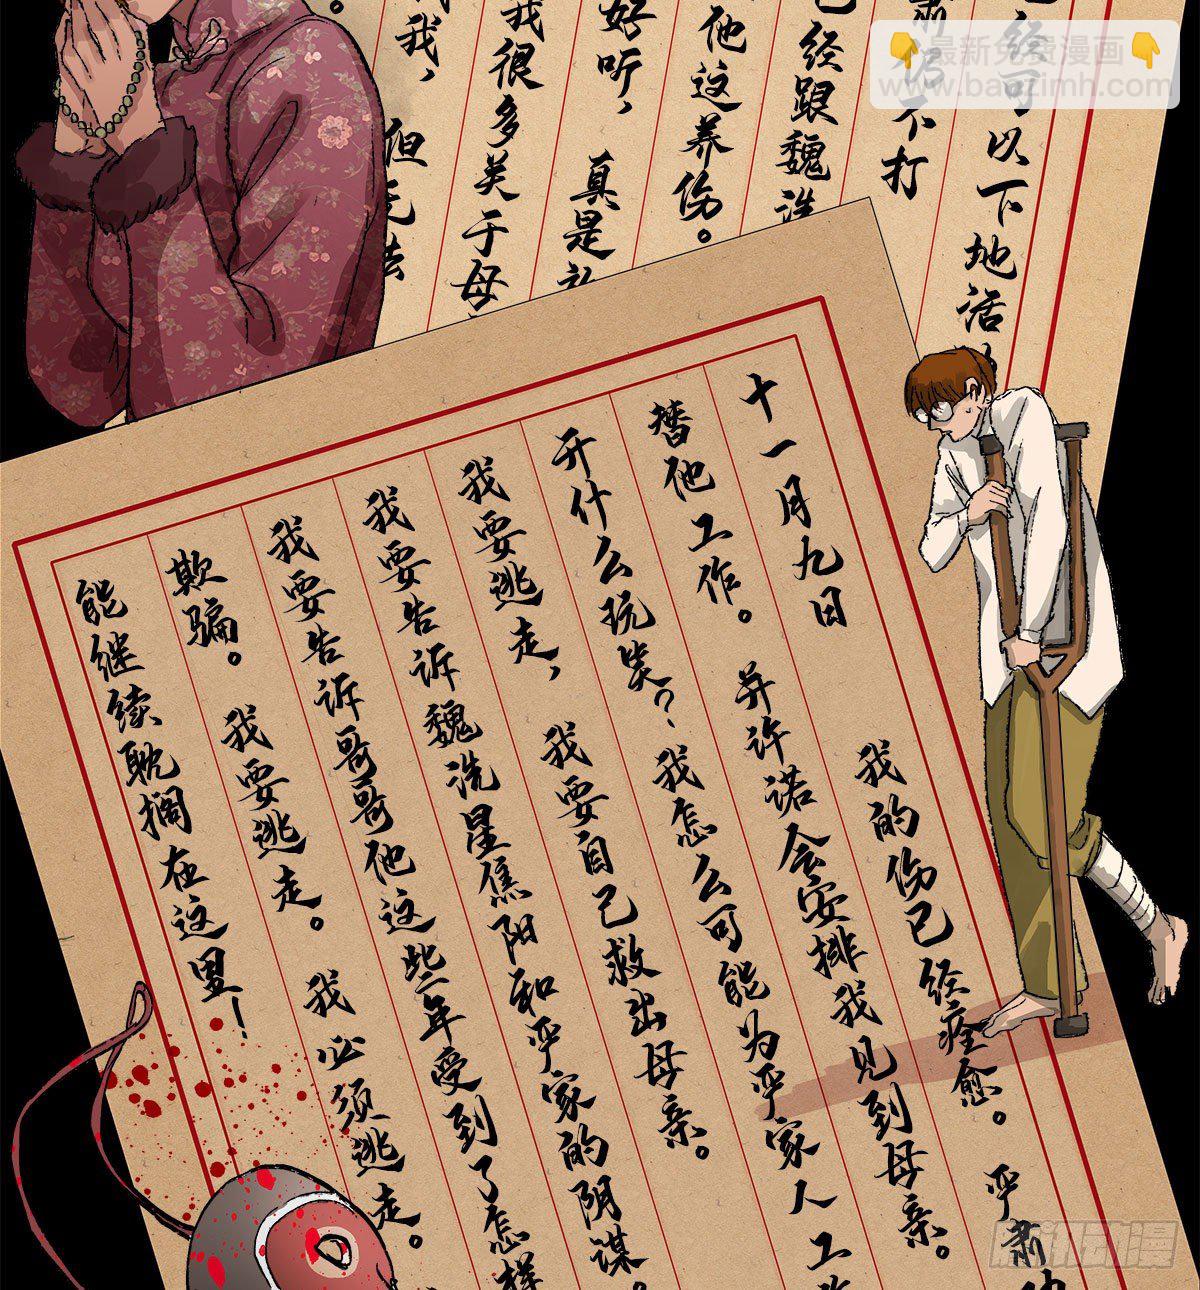 最新免费漫画
www.baozimh.com
经可以下地活
肃
不打
已经跟魏洗
他这养伤。
好听，真是
我很多关于母
我，但无法
十一月九日 我的伤已经痊愈。乎肃
替他工作。并许诺会安排我见到母亲。
开什么玩笑？我怎么可能为乎家人工
我要逃走，我要自己救出母亲。
我要告诉魏洗星焦阳和乎家的阴谋。
我要告诉哥哥他这些年受到了怎样
欺骗。我要逃走。我必须逃走。
能继续耽搁在这里！
腾讯动漫